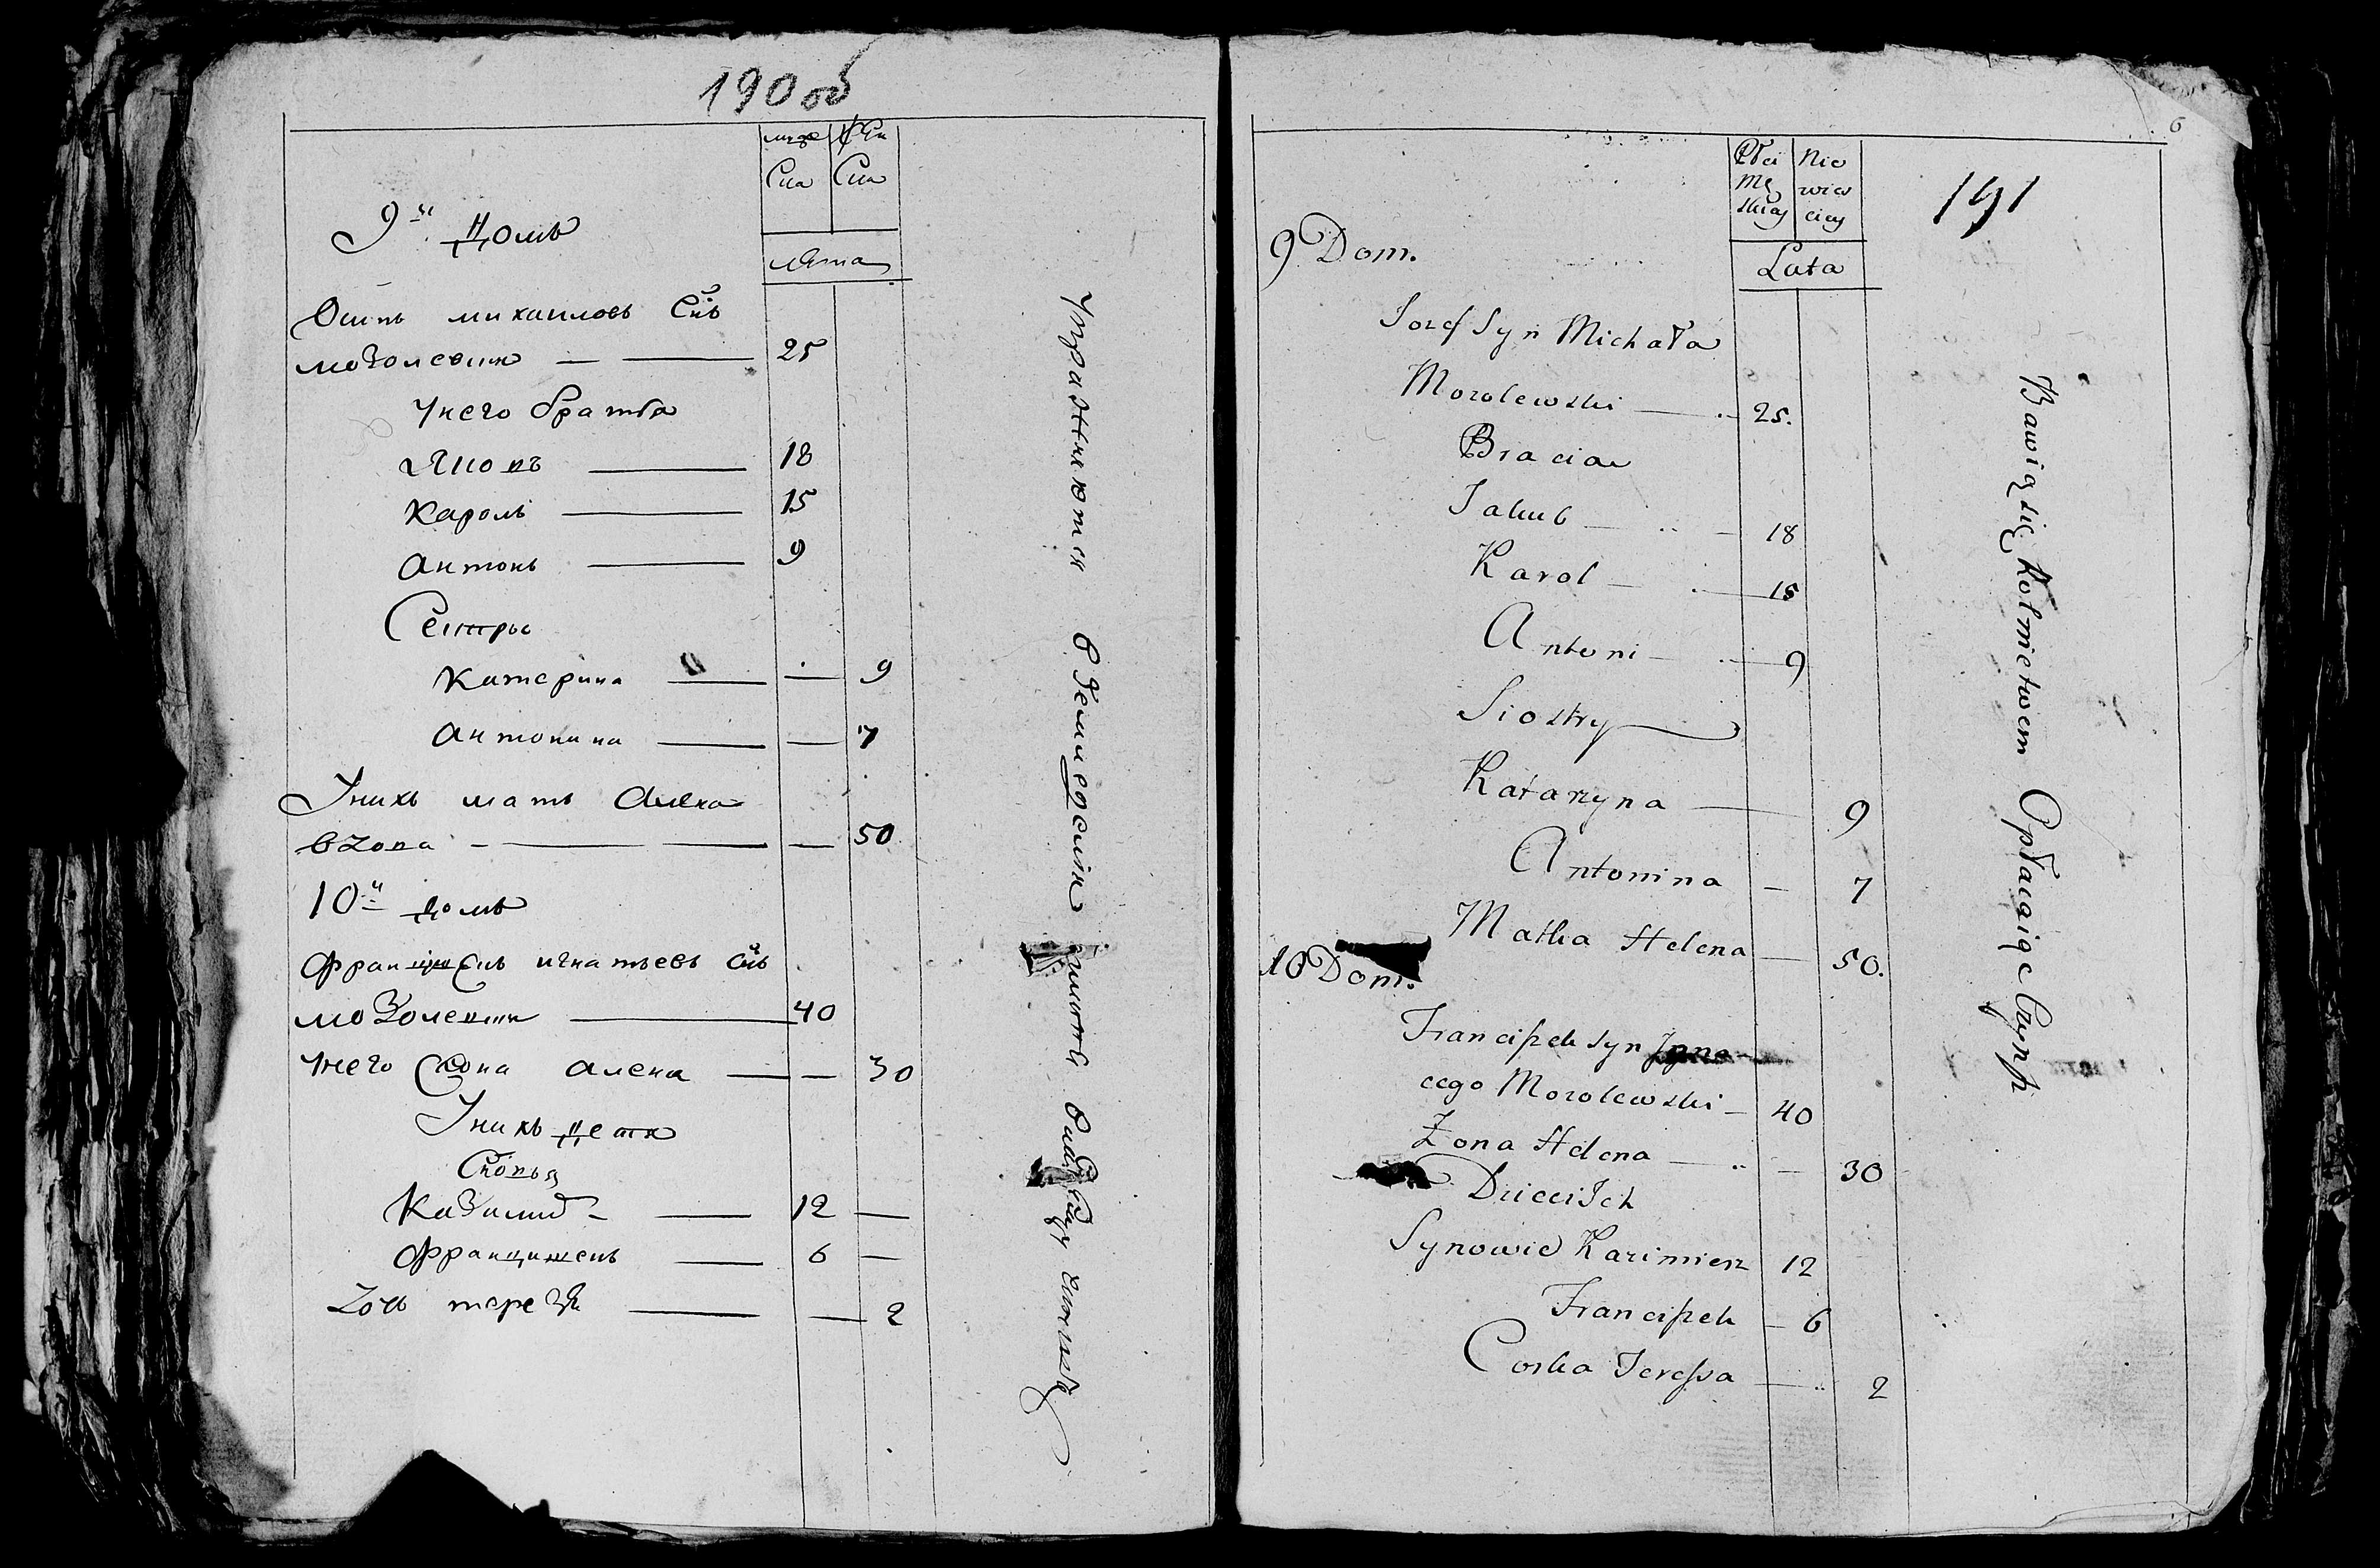 190 об
муже Жен
ска ска
9й домъ
лета
Осипъ михаиловъ Снъ
мозолевски — — 25
Унего братя
Якопъ — 18
Кароль — 15
Антонъ — 9
Сестры
Катерина — — 9
Антонина — — 7
Унихъ мать Алена
вдова — — — 50
10й домъ
Францишекъ игнатьевъ Снъ
мозолевски — 40
унего жона алена — — 30
Унихъ дети
Сновья
Казимир — 12 —
Францишекъ — 6 —
Доч тереза — — 2
Упражняются в Земледелии
191
6
Płci Nie
Mę wieś
skiey ciey
9 Dom.
Lata
Jozef Syn Michała
Mozolewski — 25.
Bracia
Jakub — 18
Karol — 15
Antoni — 9
Siostry
Katarzyna — 9
Antonina — 7
Matka Helena — 50.
10 Dom.
Franciszek syn Igna-
cego Mozolewski — 40
Żona Helena — 30
Dzieci Ich
Synowie Kazimierz 12
Franciszek — 6
Corka Teressa — 2
Bawią się Rolnictwem Opłacaiąc Czynsz